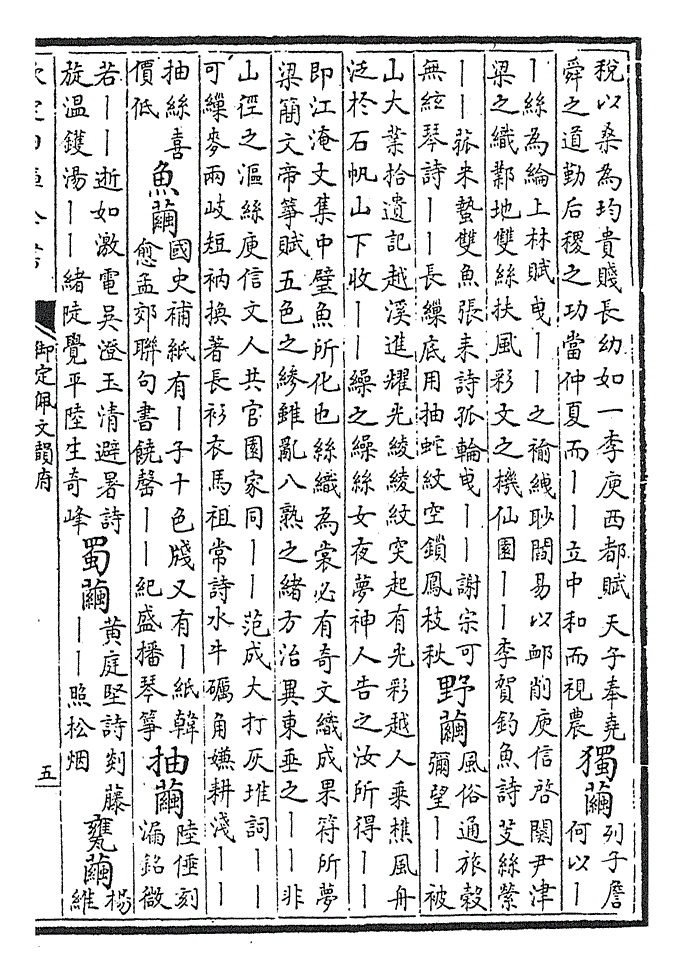 稅以桑為均貴賤長幼如一李庾西都賦天子奉堯
舜之道勤后稷之功當仲夏而丨丨立中和而視農
獨繭
列子詹
何以丨
丨絲為綸上林賦曳丨丨之褕絏眇閻易以䘏削庾信啓關尹津
梁之織鄴地雙絲扶風彩文之機仙園丨丨李賀釣魚詩芰絲縈
丨丨菰米蟄雙魚張耒詩孤輪曳丨丨謝宗可
無絃琴詩丨丨長繅底用抽蛇紋空鎖鳳枝秋
野繭
風俗通旅穀
彌望丨丨被
山大業拾遺記越溪進耀光綾綾紋突起有光彩越人乘樵風舟
泛於石帆山下收丨丨繰之繰絲女夜夢神人告之汝所得丨丨
即江淹文集中壁魚所化也絲織為裳必有奇文織成果符所夢
梁簡文帝箏賦五色之縿雖亂八熟之緒方治異東垂之丨丨非
山徑之漚絲庾信文人共官園家同丨丨范成大打灰堆詞丨丨
可繅麥兩岐短衲換著長衫衣馬祖常詩水牛礪角嫌耕淺丨丨
抽絲喜
價低
魚繭
國史補紙有丨子十色牋又有丨紙韓
愈孟郊聯句書饒罄丨丨紀盛播琴箏
抽繭
陸倕刻
漏銘微
若丨丨逝如激電吳澄玉清避暑詩
旋温鑊湯丨丨緒陡覺平陸生奇峰
蜀繭
黄庭堅詩剡藤
丨丨照松烟
甕繭
楊
維
欽定四庫全書
御定佩文韻府
五